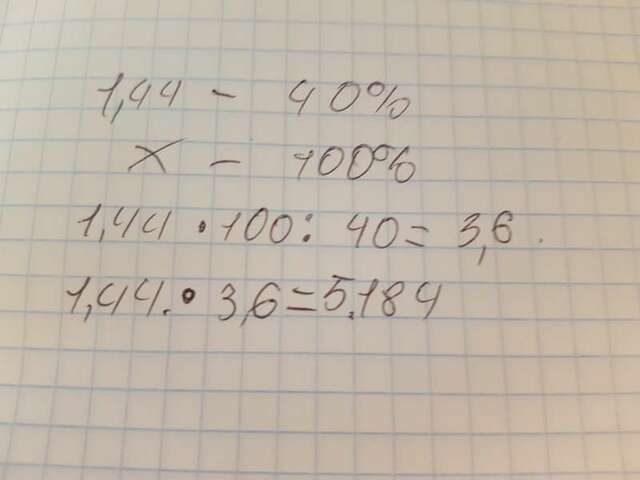 1,44 - 40%
x - 100%
1,44 · 100 : 40 = 3,6.
1,44. · 3,6 = 5.184